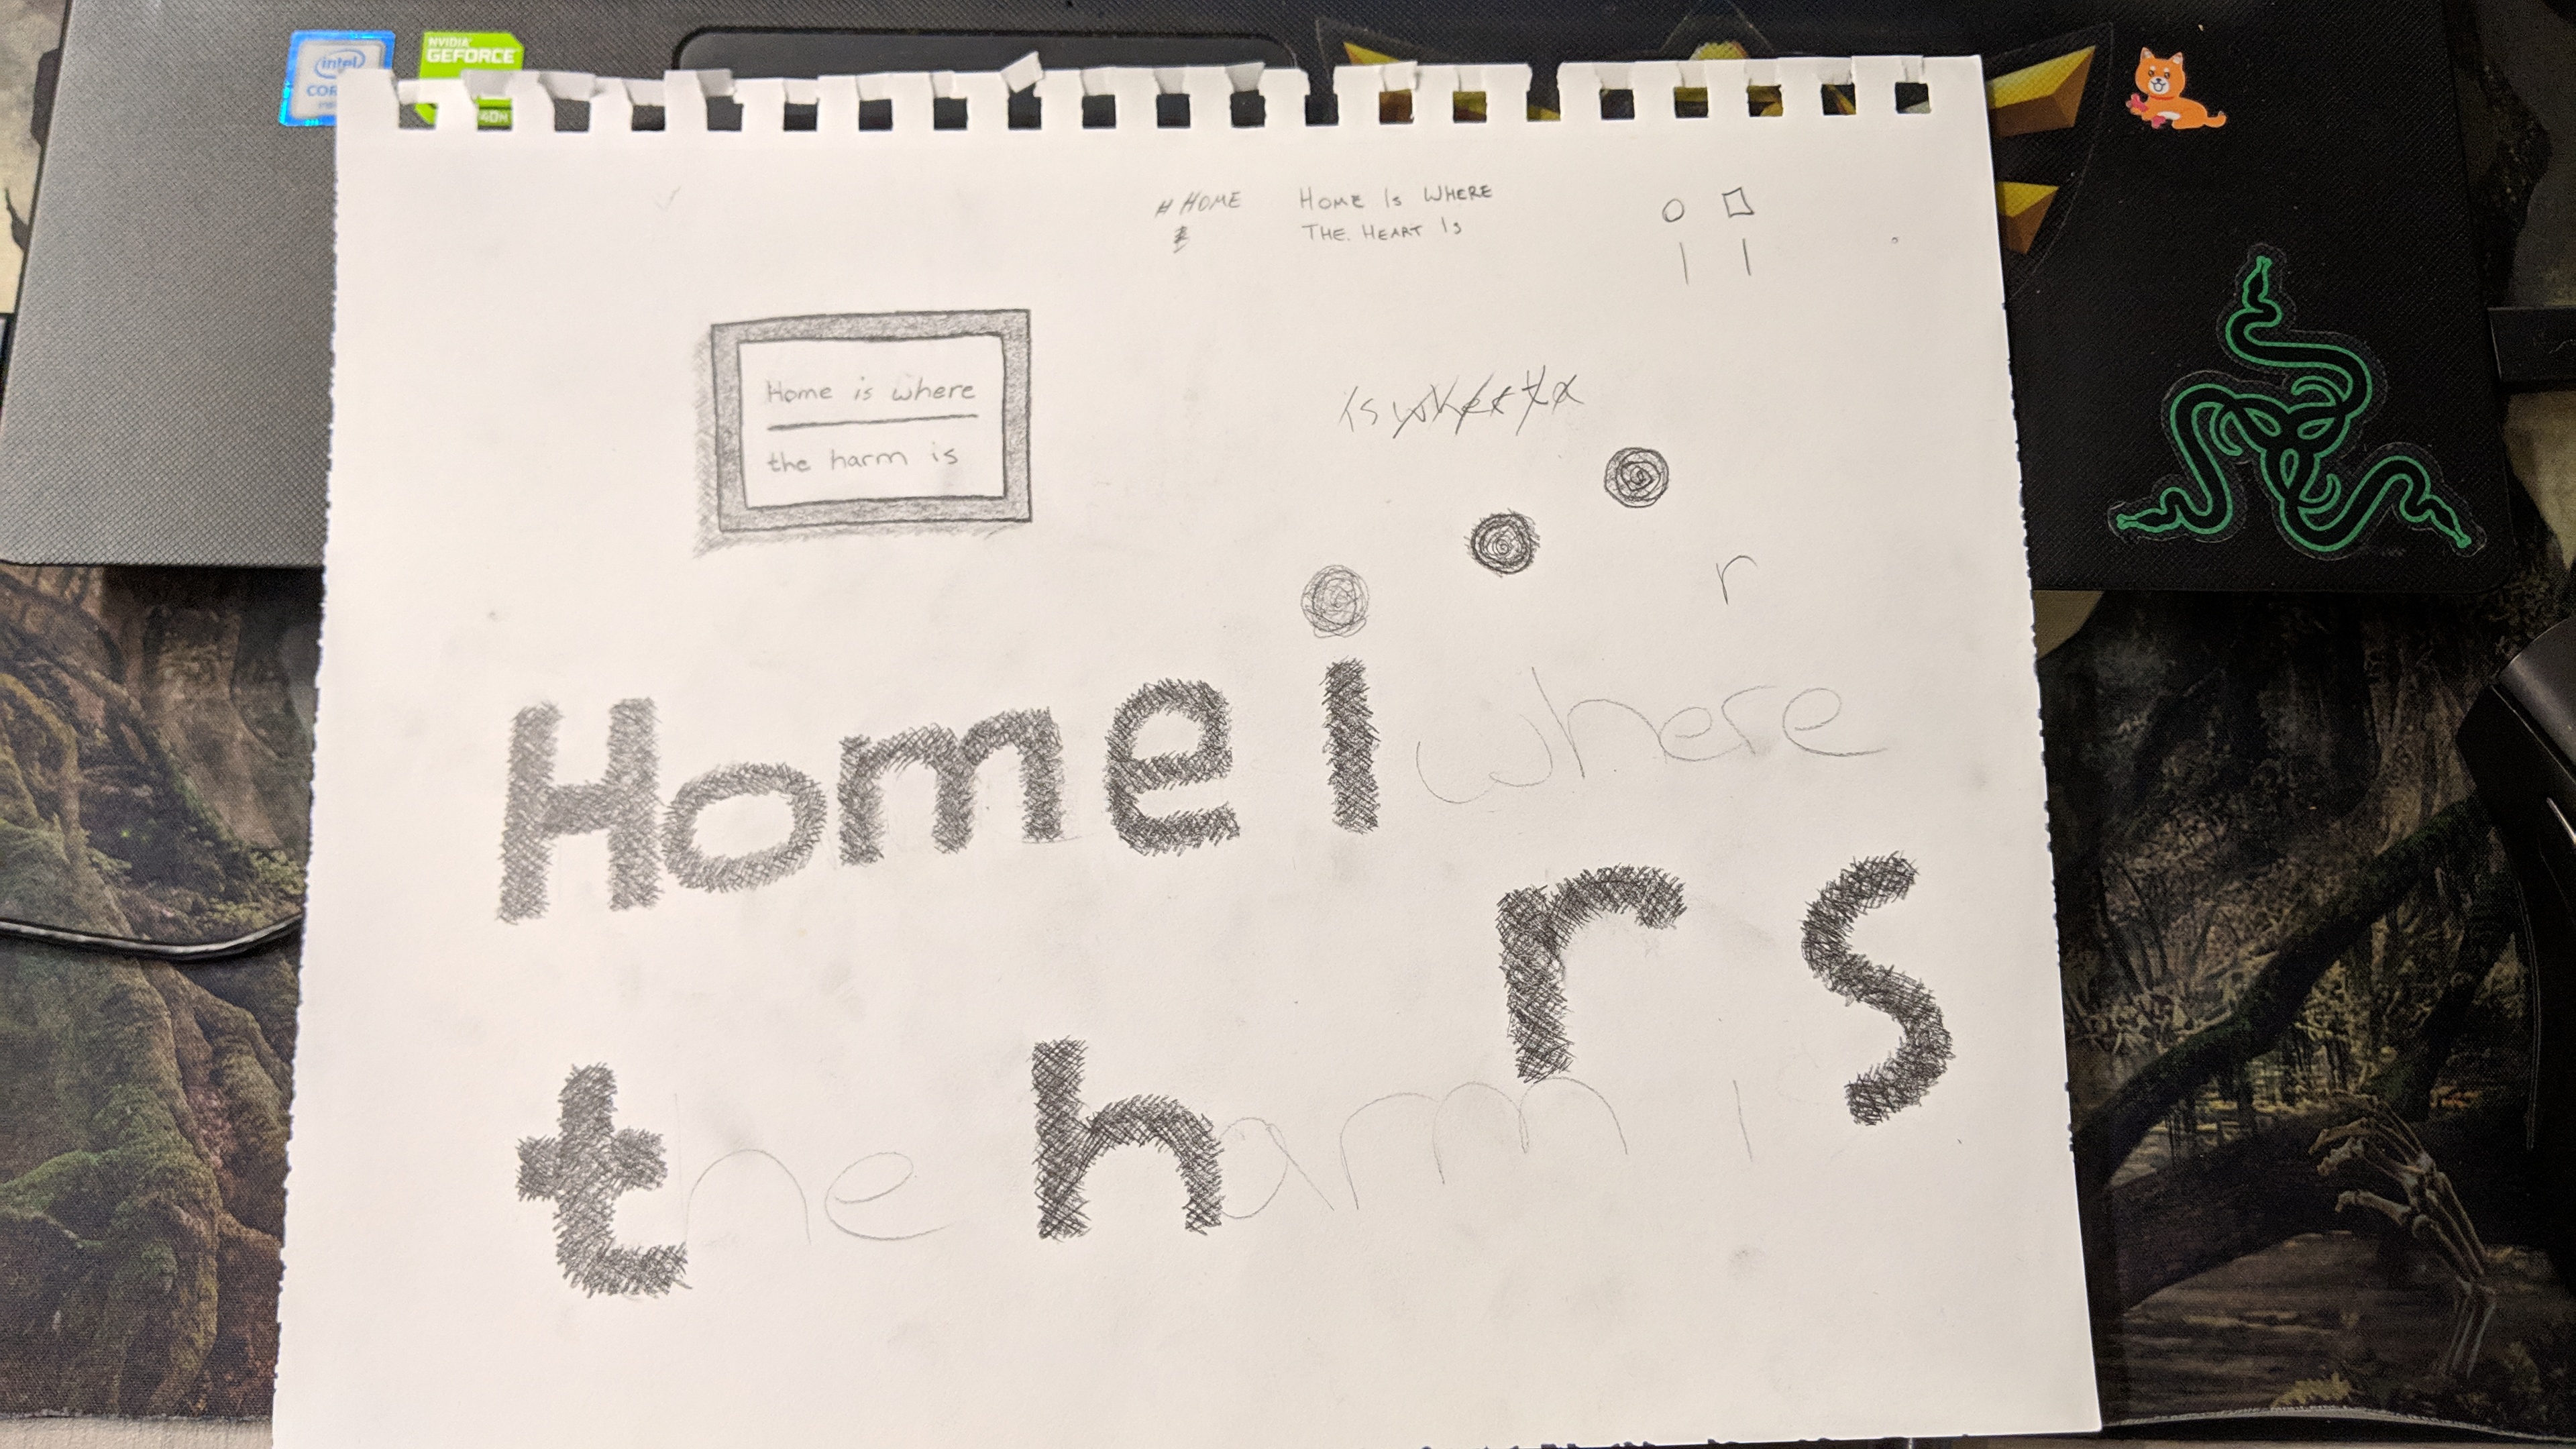 intel
COR
NVIDIA
GEFORCE
40M
# HOME
HOME IS WHERE
THE HEART IS
Home is where
the harm is
r
Home i where
r s
the harm i